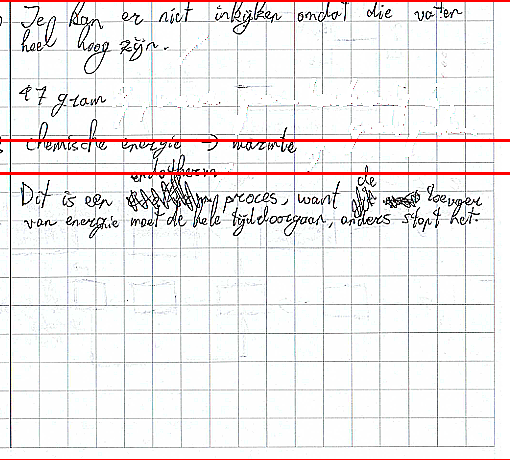 Jep kan er niet inkijken omdat die vaten
heel hoog zijn.
47 gram
chemische energie → warmte
endotherm
de
Dit is een proces, want toevoer
van energie moet de hele tijd doorgaan, anders stopt het.